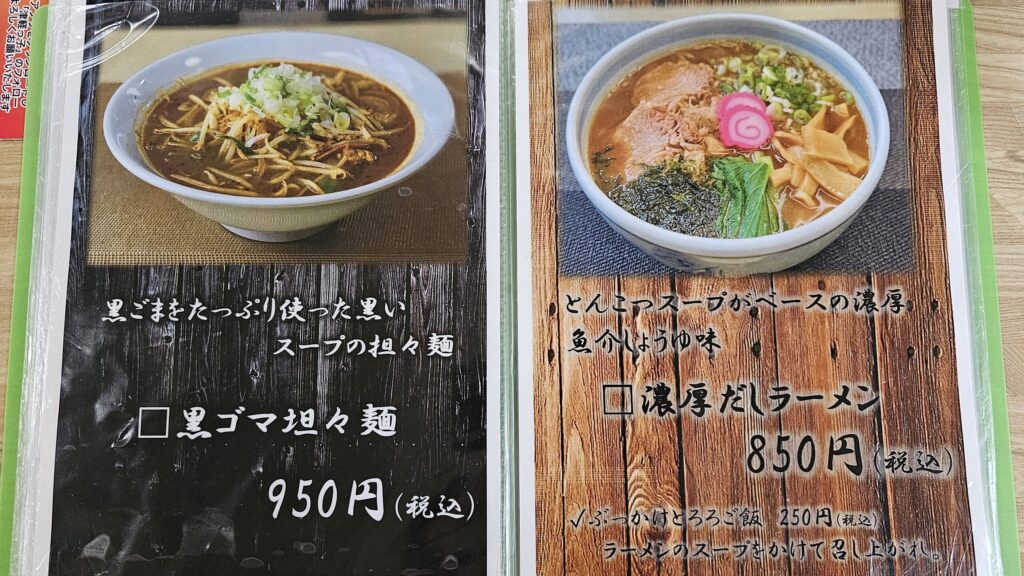 「津軽っ子」のフォロー
よろしくお願いいたします
黒ごまをたっぷり使った黒い
スープの担々麺
□黒ゴマ坦々麺
950円(税込)
とんこつスープがベースの濃厚
魚介しょうゆ味
□濃厚だしラーメン
850円(税込)
✓ぶっかけとろろご飯 250円(税込)
ラーメンのスープをかけて召し上がれ。